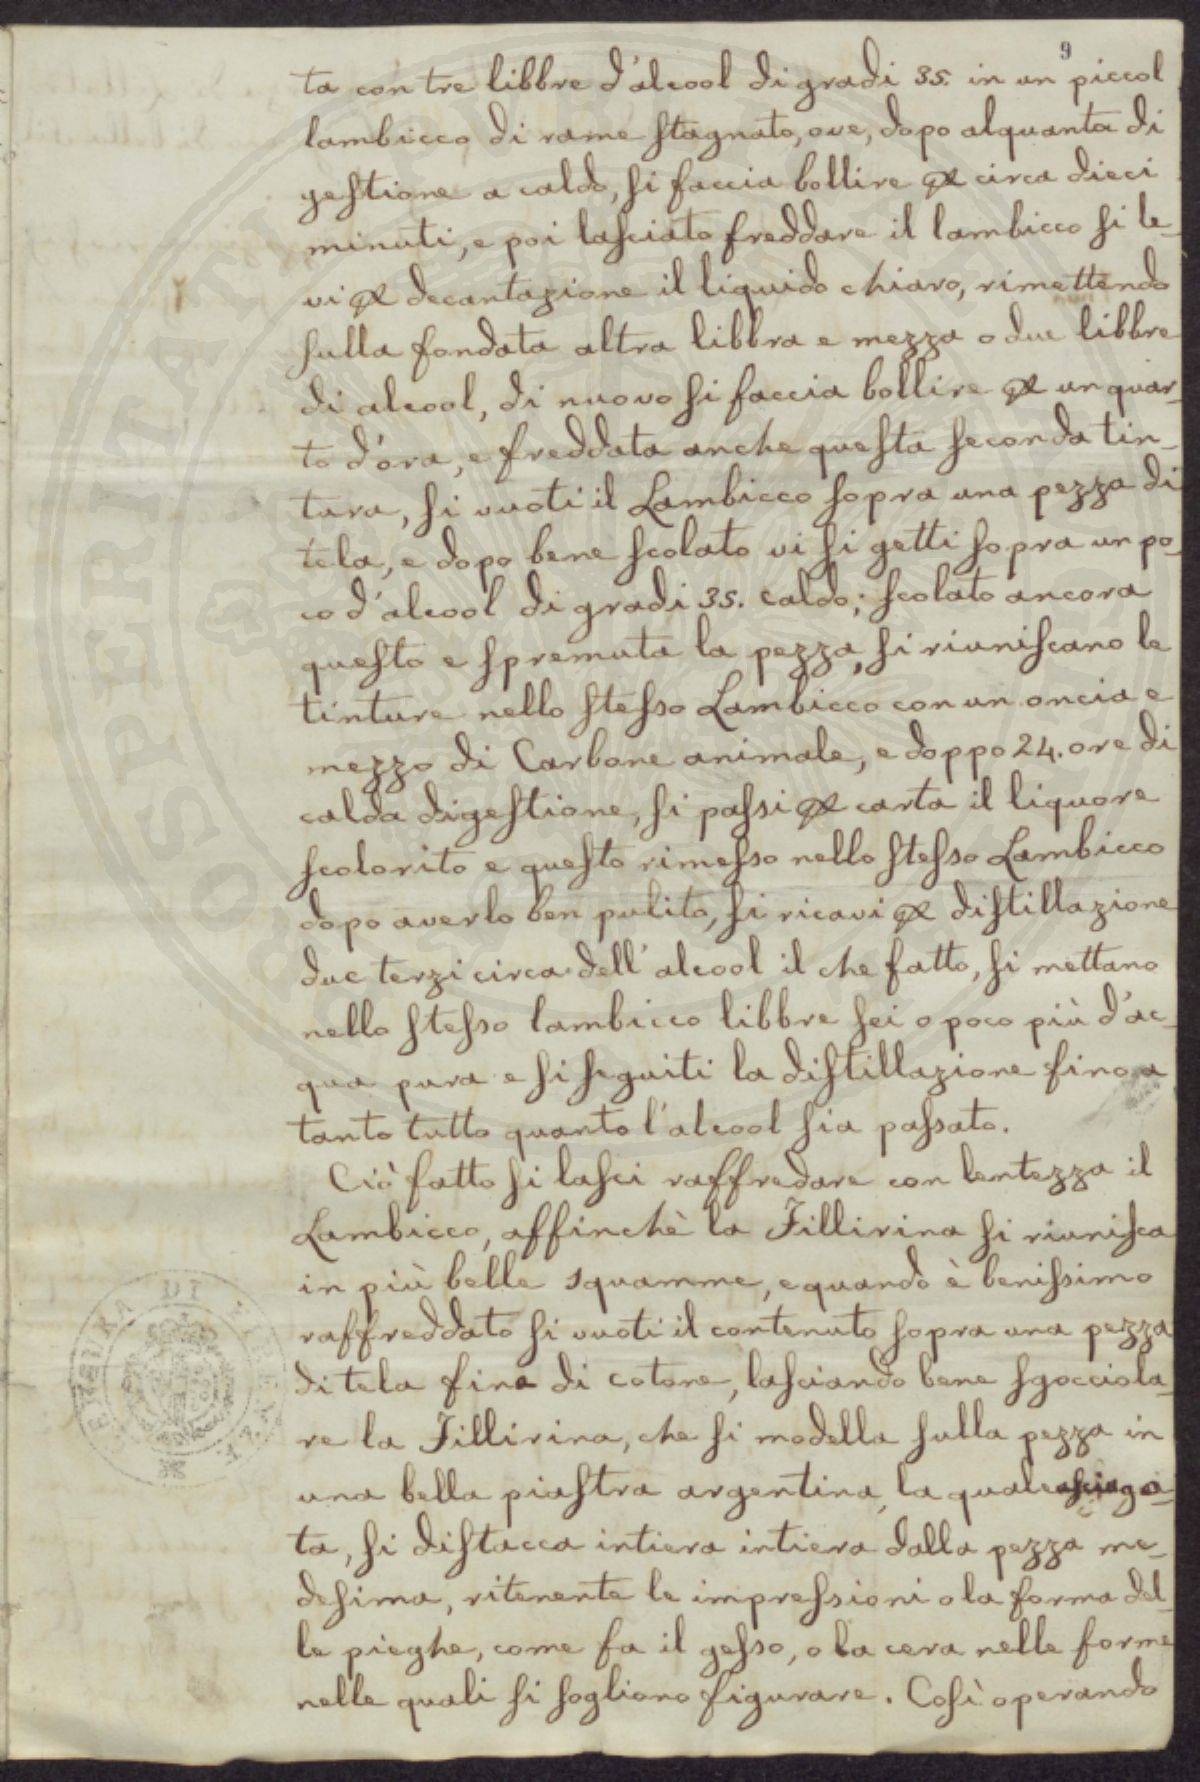 9
ta con tre libbre d'alcool di gradi 35. in un piccol
lambicco di rame stagnato, ove, dopo alquanta di
gestione a caldo, si faccia bollire p circa dieci
minuti, e poi lasciato freddare il lambicco si le_
vi p decantazione il liquido chiaro, rimettendo
sulla fondata altra libbra e mezza o due libbre
di alcool, di nuovo si faccia bollire p un quar_
to d'ora, e freddata anche questa seconda tin_
tura, si vuoti il Lambicco sopra una pezza di
tela, e dopo bene scolato vi si getti sopra un po_
co d'alcool di gradi 35. caldo; scolato ancora
questo e spremuta la pezza, si riuniscano le
tinture nello stesso Lambicco con un oncia e
mezzo di Carbone animale, e doppo 24. ore di
calda digestione, si passi p carta il liquore
scolorito e questo rimesso nello stesso Lambicco
dopo averlo ben pulito, si ricavi p distillazione
due terzi circa dell'alcool il che fatto, si mettano
nello stesso lambicco libbre sei o poco più d'ac_
qua pura e si seguiti la distillazione fino a
tanto tutto quanto l'alcool sia passato.
Ciò fatto si lasci raffredare con lentezza il
Lambicco, affinchè la Fillirina si riunisca
in più belle squamme, e quando è benissimo
raffreddato si vuoti il contenuto sopra una pezza
di tela fine di cotone, lasciando bene sgocciola_
re la Fillirina, che si modella sulla pezza in
una bella piastra argentina, la quale asciuga_
ta, si distacca intiera intiera dalla pezza me_
desima, ritenente le impressioni o la forma del_
le pieghe, come fa il gesso, o la cera nelle forme
nelle quali si sogliono figurare. Così operando
PROSPERITATI
CENSURA DI